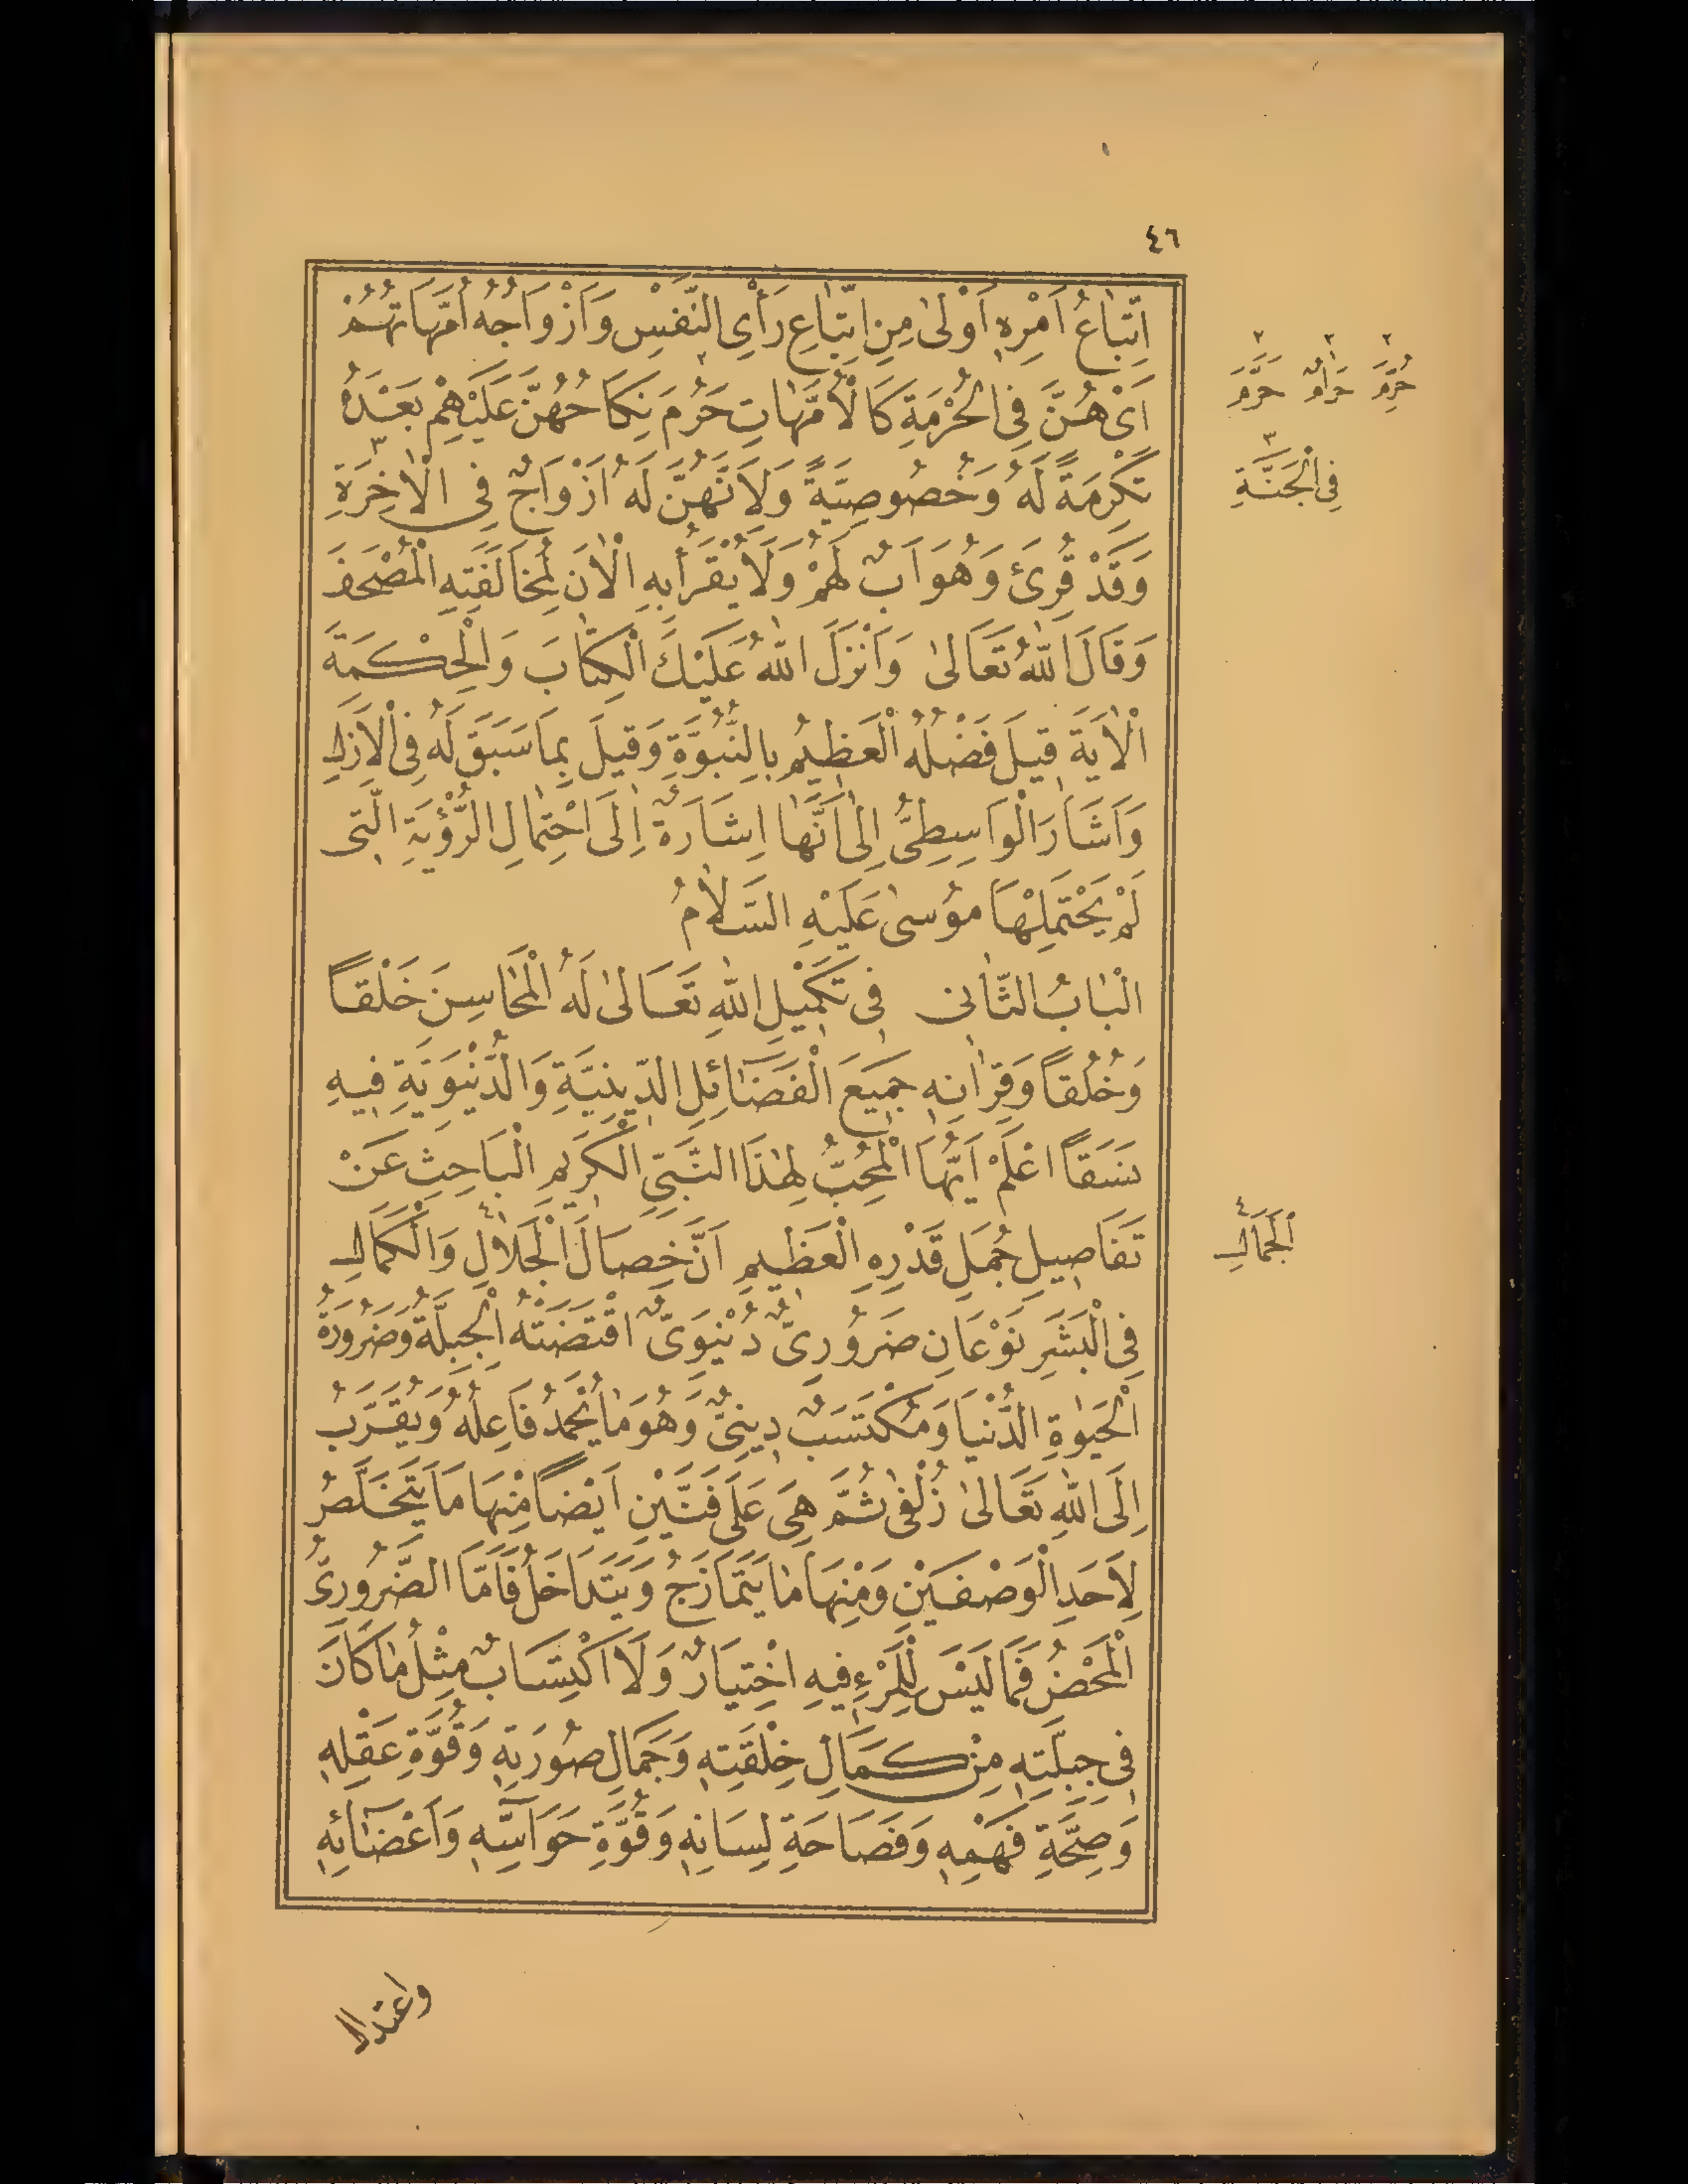 ٤٦
اِتِّبَاعُ اَمْرِهِ اَوْلٰى مِنِ اتِّبَاعِ رَأْىِ النَّفْسِ وَاَزْوَاجُهُ اُمَّهَاتُهُمْ
اَىْ هُنَّ فِى الْحُرْمَةِ كَالْاُمَّهَاتِ حَرُمَ نِكَاحُهُنَّ عَلَيْهِمْ بَعْدَهُ
تَكْرِمَةً لَهُ وَخُصُوصِيَّةً وَلِاَنَّهُنَّ لَهُ اَزْوَاجٌ فِى الْاٰخِرَةِ
وَقَدْ قُرِئَ وَهُوَ اَبٌ لَهُمْ وَلَا يُقْرَأُ بِهِ الْاٰنَ لِمُخَالَفَتِهِ الْمُصْحَفَ
وَقَالَ اللّٰهُ تَعَالٰى وَاَنْزَلَ اللّٰهُ عَلَيْكَ الْكِتَابَ وَالْحِكْمَةَ
الْاٰيَةَ قِيلَ فَضْلُهُ الْعَظِيمُ بِالنُّبُوَّةِ وَقِيلَ بِمَا سَبَقَ لَهُ فِى الْاَزَلِ
وَاَشَارَ الْوَاسِطِىُّ اِلٰى اَنَّهَا اِشَارَةٌ اِلَى احْتِمَالِ الرُّؤْيَةِ الَّتِى
لَمْ يَحْتَمِلْهَا مُوسٰى عَلَيْهِ السَّلَامُ
الْبَابُ الثَّانِى فِى تَكْمِيلِ اللّٰهِ تَعَالٰى لَهُ الْمَحَاسِنَ خَلْقًا
وَخُلُقًا وَقِرَانِهِ جَمِيعَ الْفَضَائِلِ الدِّينِيَّةِ وَالدُّنْيَوِيَّةِ فِيهِ
نَسَقًا اعْلَمْ اَيُّهَا الْمُحِبُّ لِهٰذَا النَّبِىِّ الْكَرِيمِ الْبَاحِثِ عَنْ
تَفَاصِيلِ جُمَلِ قَدْرِهِ الْعَظِيمِ اَنَّ خِصَالَ الْجَلَالِ٤ وَالْكَمَالِ
فِى الْبَشَرِ نَوْعَانِ ضَرُورِىٌّ دُنْيَوِىٌّ اقْتَضَتْهُ الْجِبِلَّةُ وَضَرُورَةُ
الْحَيٰوةِ الدُّنْيَا وَمُكْتَسَبٌ دِينِىٌّ وَهُوَ مَا يُحْمَدُ فَاعِلُهُ وَيُقَرِّبُ
اِلَى اللّٰهِ تَعَالٰى زُلْفٰى ثُمَّ هِىَ عَلَى فَنَّيْنِ اَيْضًا مِنْهَا مَا يَتَخَلَّصُ
لِاَحَدِ الْوَصْفَيْنِ وَمِنْهَا مَا يَتَمَازَجُ وَيَتَدَاخَلُ فَاَمَّا الضَّرُورِىُّ
الْمَحْضُ فَمَا لَيْسَ لِلْمَرْءِ فِيهِ اخْتِيَارٌ وَلَا اكْتِسَابٌ مِثْلُ مَا كَانَ
فِى جِبِلَّتِهِ مِنْ كَمَالِ خِلْقَتِهِ وَجَمَالِ صُورَتِهِ وَقُوَّةِ عَقْلِهِ
وَصِحَّةِ فَهْمِهِ وَفَصَاحَةِ لِسَانِهِ وَقُوَّةِ حَوَاسِّهِ وَاَعْضَائِهِ
٢ حُرِّمَ ٢ حَرَامٌ ٢ حَرَّمَ
٣ فِى الْجَنَّةِ
٤ اَلْجَمَالِ
واعتدال